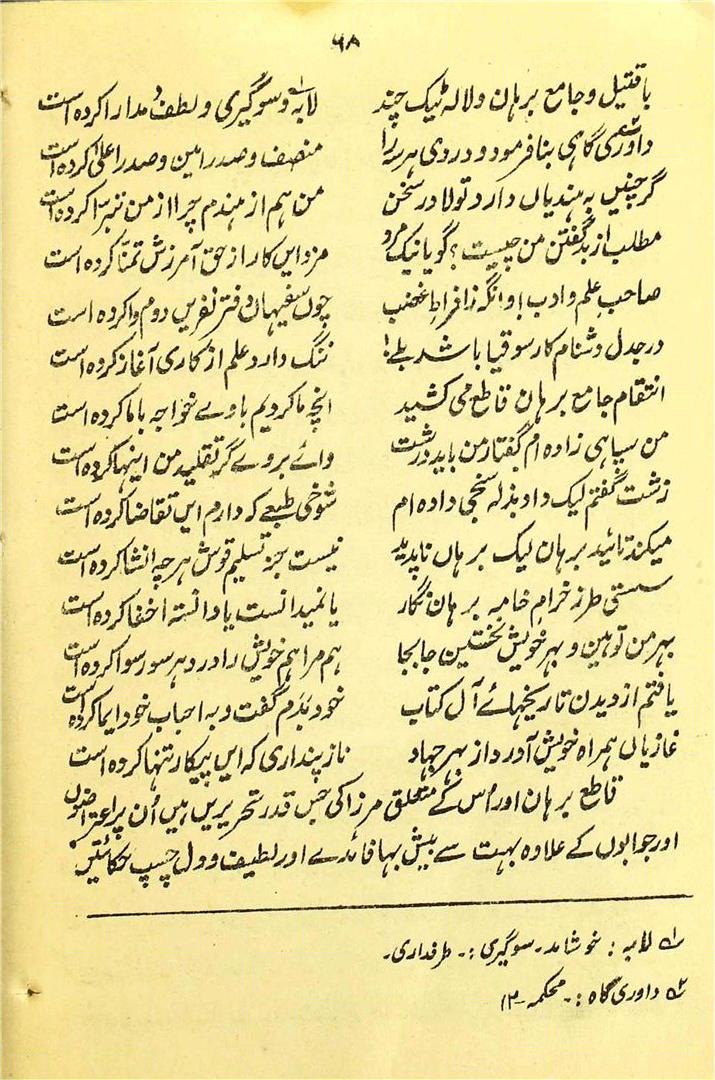 ۶۸
با قتیل و جامع برہان و لالہ ٹیک چند لابہ و سوگیری و لطف و مدارا کردہ است
داوری گاہی بنا فرمود و در وی ہر سہ را منصف و صدر امین و صدر اعلیٰ کردہ است
گر چنیں بہ ہندیاں دارد تولا در سخن من ہم از ہندم چرا از من تبرا کردہ است
مطلب از بد گفتن من چیست؟ گویا نیک مرد مزد ایں کار از حق آمرزش تمنا کردہ است
صاحبِ علم و ادب او انگہ ز افراطِ غضب چوں سفیہان دفتر نفریں و دم وا کردہ است
در جدل دشنام کار سوقیا باشد بلے! ننگ دارد علم از کاری آغا ز کردہ است
انتقام جامع برہان قاطع می کشید انچہ ما کردیم با وے خواجہ با ما کردہ است
من سپاہی زادہ ام گفتار من باید درشت وائے بر وے گر تقلید من اینہا کردہ است
زشت گفتم لیک داد بذلہ سنجی دادہ ام شوخی طبعے کہ دارم ایں تقاضا کردہ است
میکند تائید برہان لیک برہاں ناپدید نیست جز تسلیم قولش ہر چہ انشا کردہ است
سستی طرز خرامِ خامہ برہان نگار یا نمیدانست یا دانستہ اخفا کردہ است
بہر من توہین و بہر خویش تحسین جا بجا ہم مرا ہم خویش را در دہر رسوا کردہ است
یافتم از دیدن تاریخہائے آں کتاب خود بدم گفت و بہ احباب خود ایما کردہ است
غازیاں ہمراہ خویش آورد از بہر جہاد تا نپنداری کہ ایں پیکار تنہا کردہ است
قاطع برہان اور اُس کے متعلق مرزا کی جس قدر تحریریں ہیں اُن پر اعتراضوں
اور جوابوں کے علاوہ بہت سے بیش بہا فائدے اور لطیف و دل چسپ حکائتیں
۱؎ لابہ : خوشامد۔ سوگیری :۔ طرفداری۔
۲؎ داوری گاہ :۔ محکمہ ۔۱۲